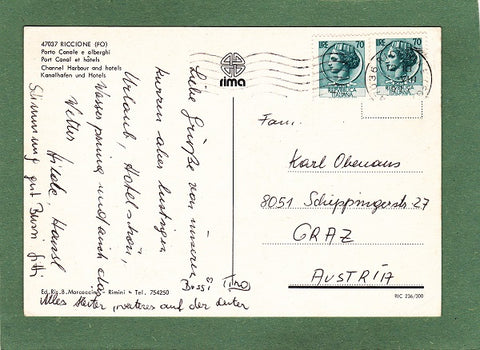 47037 RICCIONE (FO)
Porto Canale e alberghi
Port Canal et hôtels
Channel Harbour and hotels
Kanalhafen und Hotels
rima
LIRE 70
REPUBBLICA
ITALIANA
LIRE 70
REPUBBLICA
ITALIANA
Liebe Grüße von unserem
kurzen aber lustigen
Urlaub, Hotel schön,
Wasser prima und auch das
Wetter!
Hansl
Stimmung gut Bussi
Bussi
Tino
Alles Heiter, weiteres auf der
Fam.
Karl Obenaus
8051 Schippingerstr 27
GRAZ
AUSTRIA
Ed. Rig. B. Marcaccini - Rimini - Tel. 754250
RIC 236/300